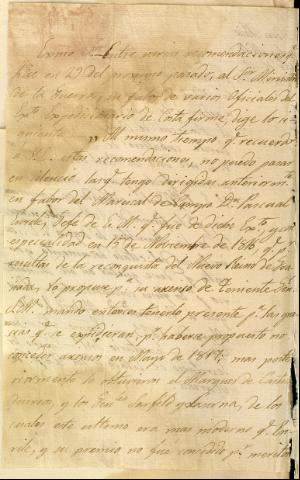 Exmo Sor Entre varias recomendaciones q.
hice en 29 del proximo pasado, al Sor Ministro
de la Guerra, en fabor de varios Oficiales del
Exto expedicionario de Costa firme, dige lo si
guiente. „Al mismo tiempo q. recuerdo
a V. estas recomendaciones, no puedo pasar
en silencio las q. tengo dirigidas anteriormte
en fabor del Mariscal de Campo Dn Pascual
Enrile, Gefe de E. M. q. fue de dicho Exto, y con
especialidad en 15 de Noviembre de 1816 q. p.
resultas de la reconquista del Nuevo Reino de Gra
nada, lo propuse pa su ascenso de Teniente Genl
S. M. mandó entonces tenerlo presente pa las gra
cias q. se expidieran, pr haberse propuesto no
conceder ascensos en Mayo de 1817; mas poste
riormente lo obtuvieron el Marques de Casa
desiros, y los Genes Sarsfield y Laserna, de los
cuales este ultimo era mas moderno q. En
rile, y su premio no fue concedido pr meritos